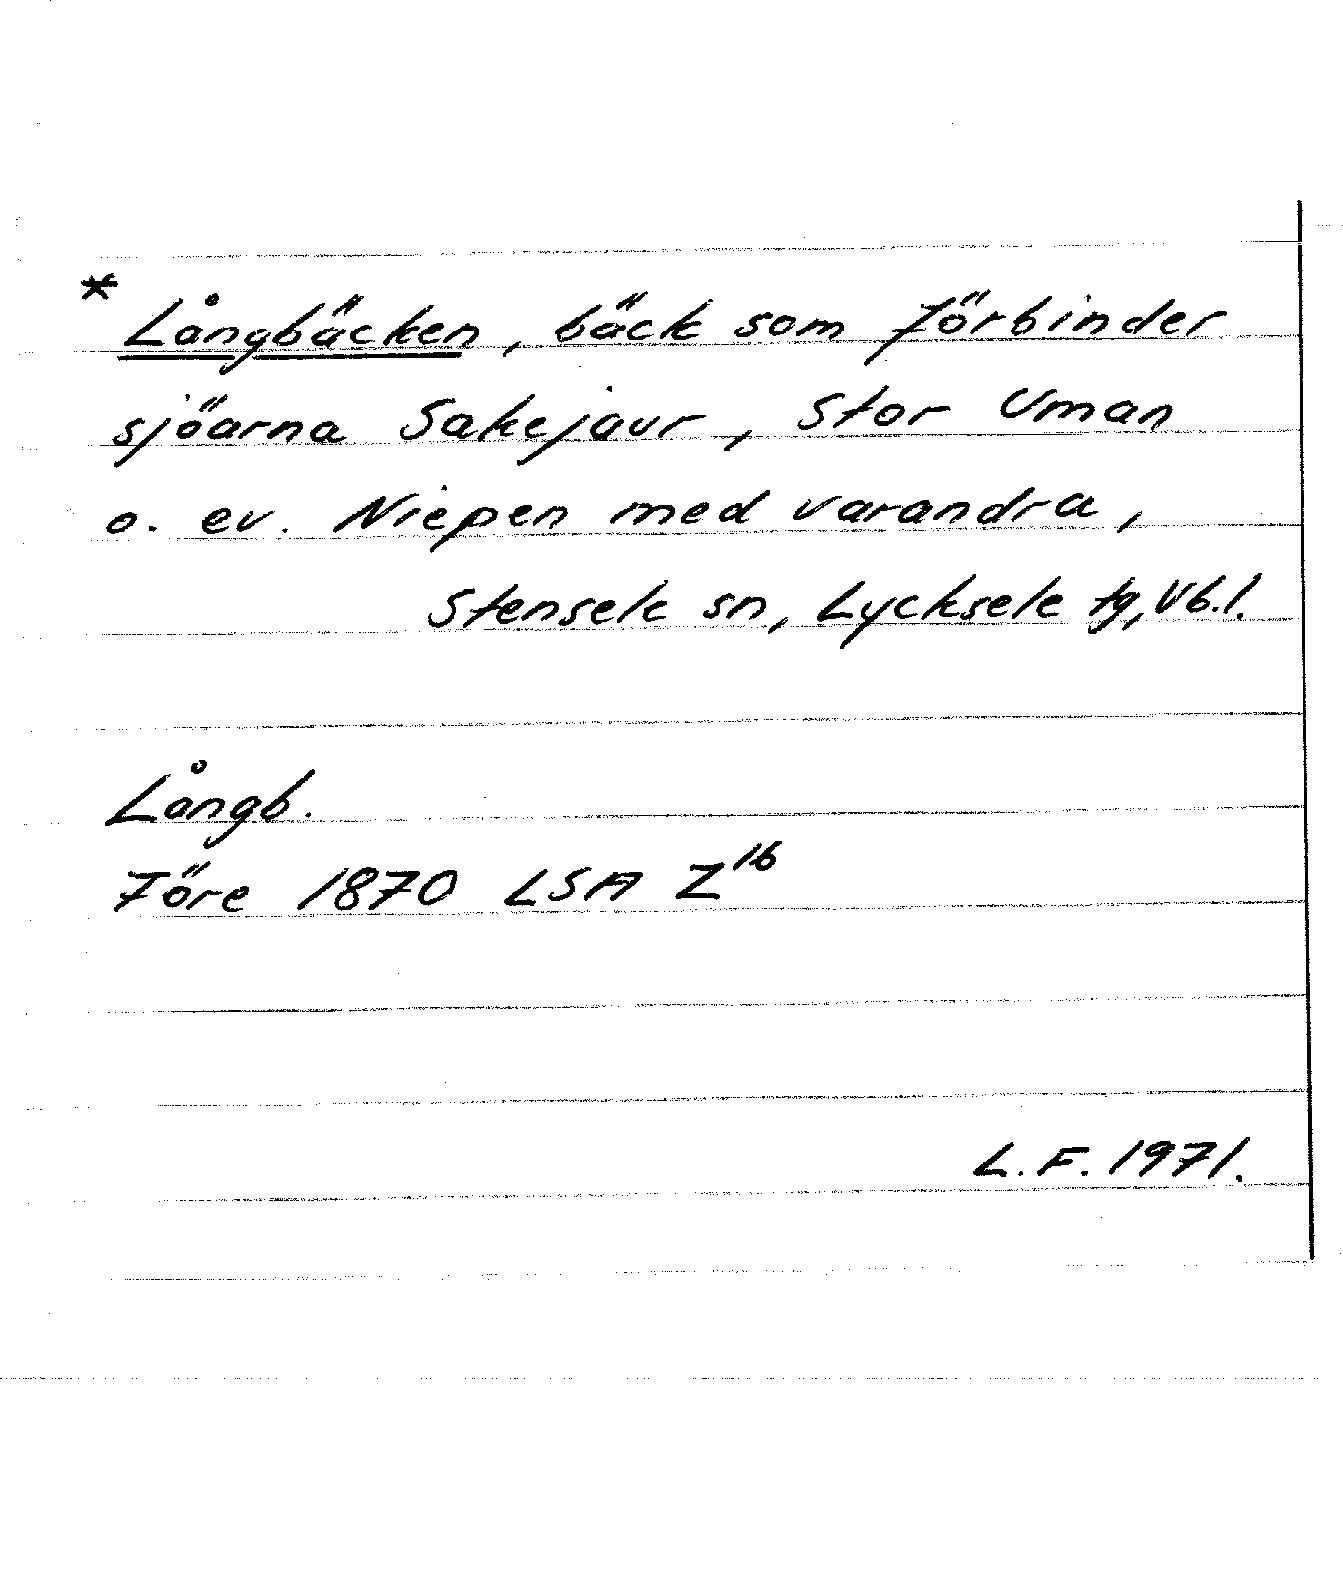 * Långbäcken, bäck som förbinder
sjöarna Sakejaur, Stor Uman
o. ev. Niepen med varandra,
Stensele sn, Lycksele tg, Vb.l.
Långb.
Före 1870 LSA Z¹⁶
L.F. 1971.